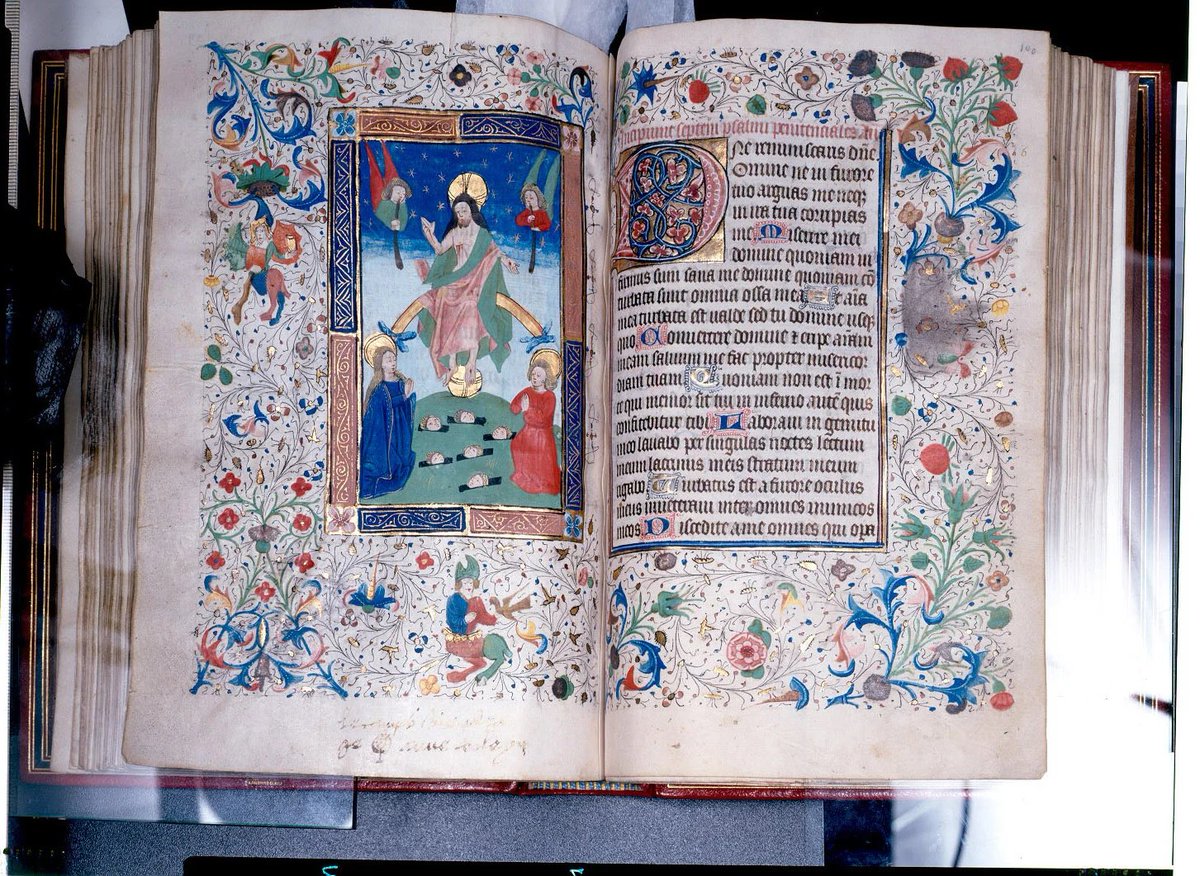 100
Incipiunt septem psalmi penitenciales An
Ne reminiscaris dñe.
Domine ne in furore
tuo arguas me neqꝫ
in ira tua corripias
me Miserere mei
domine quoniam in
firmus sum sana me domine quoniam cō
turbata sunt omnia ossa mea Et aīa
mea turbata est valde sed tu domine usqꝫ
quo Convertere domine ⁊ eripe aīam
meam salvum me fac propter misericor
diam tuam Quoniam non est ī mor
te qui memor sit tui in inferno autē quis
confitebitur tibi Laboravi in gemitu
meo lavabo per singulas noctes lectum
meum lacrimis meis stratum meum
rigabo Turbatus est a furore oculus
meus inveteravi inter omnes inimicos
meos Discedite a me omnes qui opa